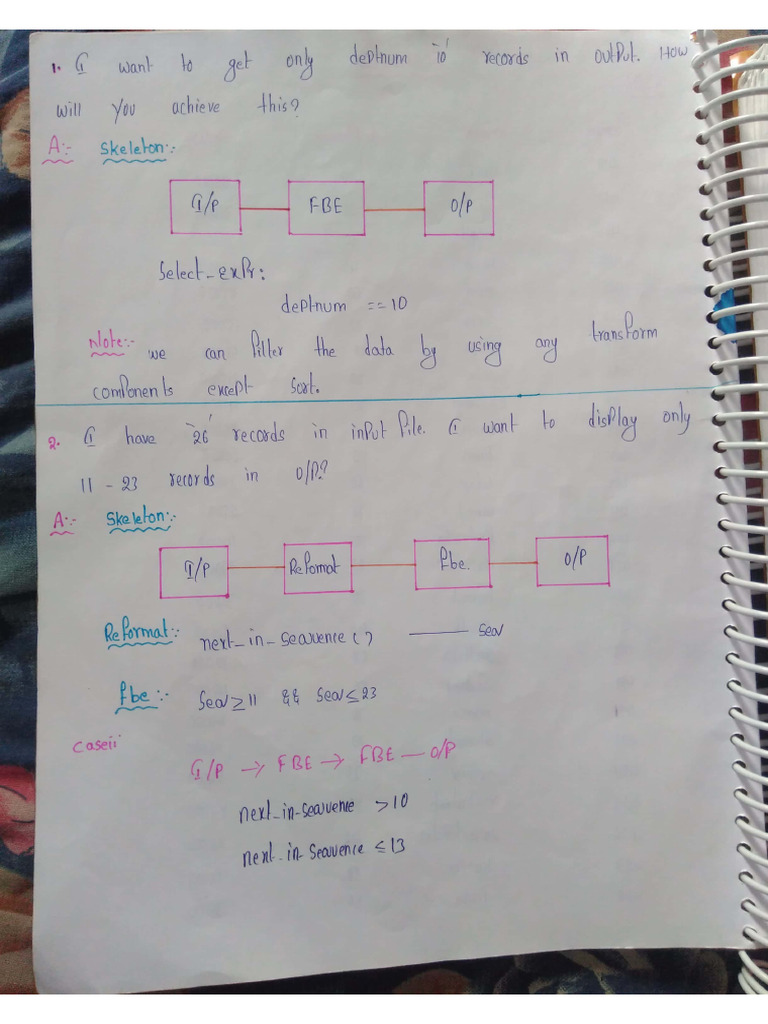 1. I want to get only deptnum '10' records in output. How
will you achieve this?
A:- Skeleton:-
I/P FBE O/P
Select_expr:
deptnum == 10
Note:- we can filter the data by using any transform
components except sort.
2. I have '26' records in input file. I want to display only
11 - 23 records in O/P?
A:- Skeleton:-
I/P Reformat fbe. O/P
Reformat:- next_in_sequence() —— seq
fbe:- seq ≥ 11 && seq ≤ 23
Caseii
I/P → FBE → FBE — O/P
next_in_sequence > 10
next_in_sequence ≤ 13